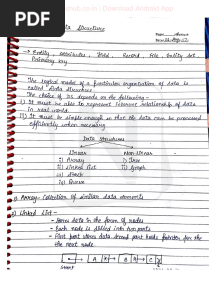 PDF
Data Structure
→ Entity, Attributes, Field, Record, File, Entity set
Primary key
The logical model of a particular organization of data is
called Data Structure
The choice of DS depends on the following -
I) It must be able to represent relationship of data
in real world.
II) It must be simple enough so that the data can be processed
efficiently when necessary
Data Structures
Linear Non-linear
i) Array i) Tree
ii) Linked list ii) Graph
iii) Stack
iv) Queue
i) Array - Collection of similar data elements
ii) Linked List -
- Stores data in the form of nodes
- Each node is divided into two parts
- First part stores data second part holds pointer for the
the next node
A B C X
Start